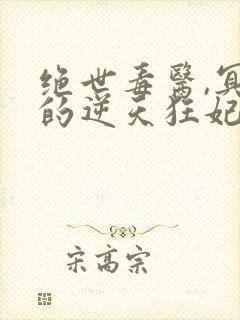 绝世毒醫,冥
的逆天狂妃
宋高宗